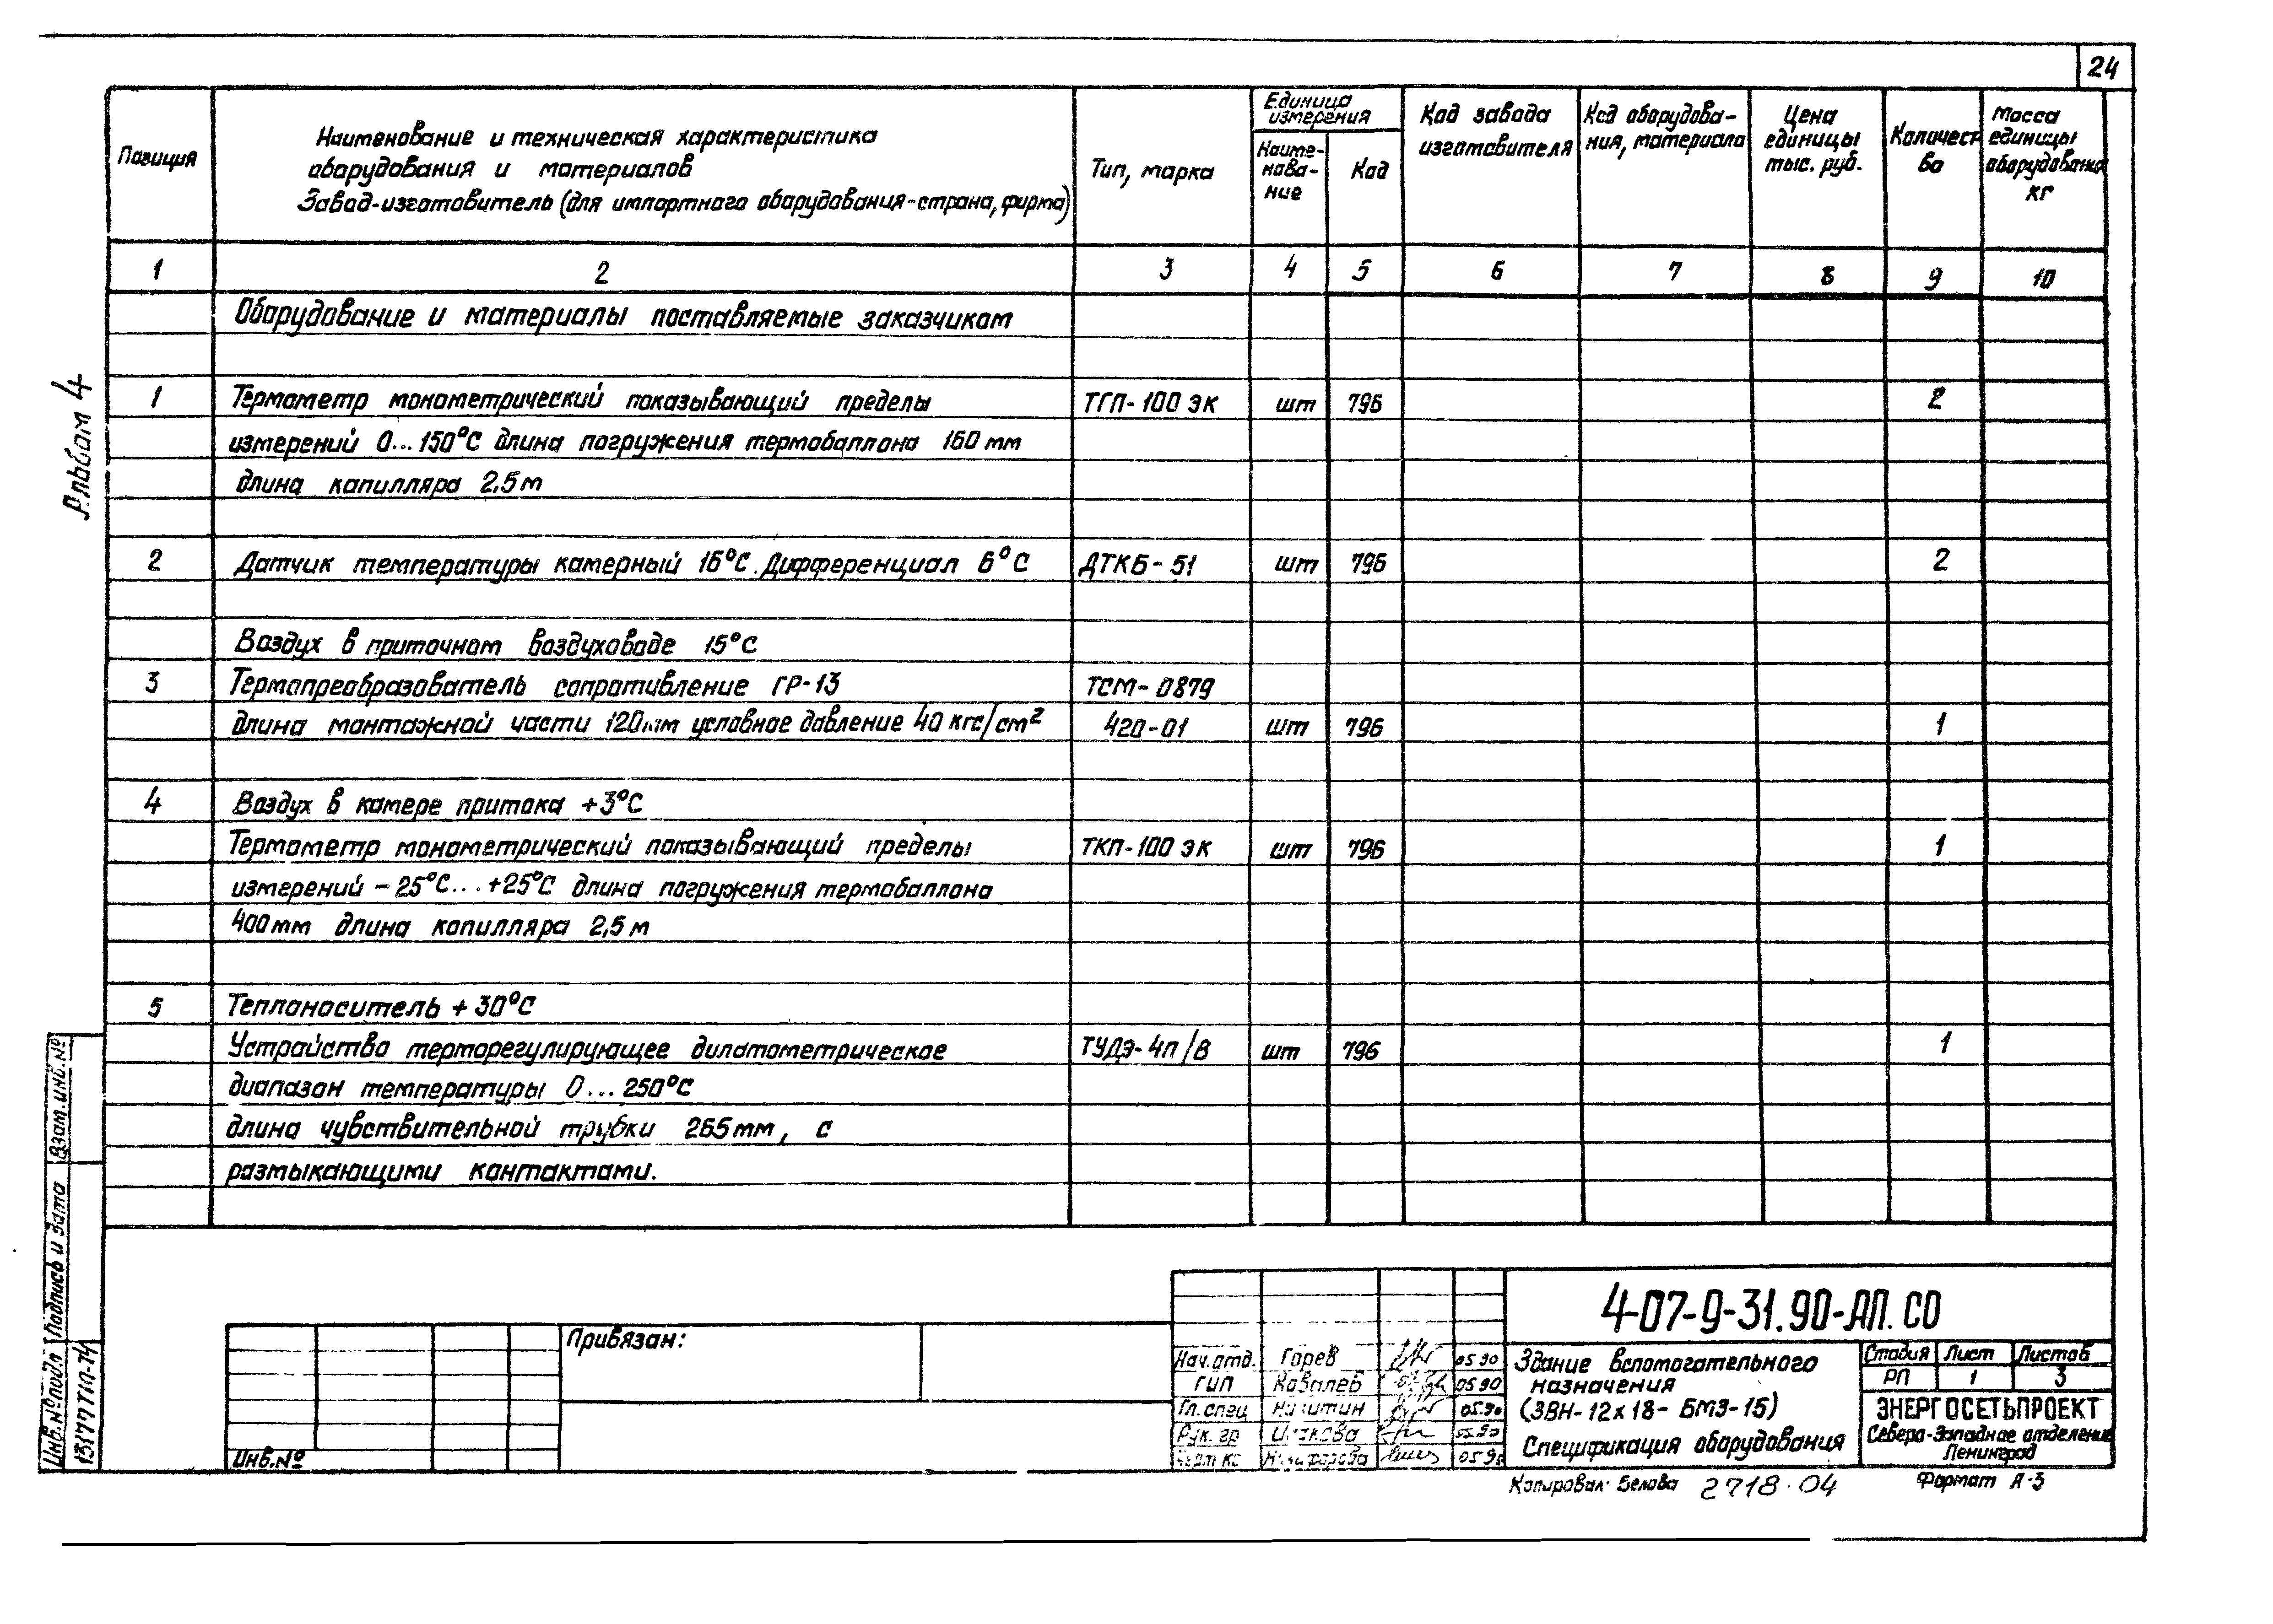 24
Позиция
Наименование и техническая характеристика
оборудования и материалов
Завод-изготовитель (для импортного оборудования-страна, фирма)
Тип, марка
Единица
измерения
Наиме-
нова-
ние
Код
Код завода
изготовителя
Код оборудова-
ния, материала
Цена
единицы
тыс. руб.
Количест
во
Масса
единицы
оборудования
кг
1 2 3 4 5 6 7 8 9 10
Оборудование и материалы поставляемые заказчиком
1 Термометр монометрический показывающий пределы ТГП-100 ЭК шт 796 2
измерений 0...150°С длина погружения термобаллона 160 мм
длина капилляра 2,5м
2 Датчик температуры камерный 16°С. Дифференциал 6°С ДТКБ-51 шт 796 2
Воздух в приточном воздуховоде 15°С
3 Термопреобразователь сопротивление ГР-13 ТСМ-0879
длина монтажной части 120мм условное давление 40 кгс/см² 420-01 шт 796 1
4 Воздух в камере притока +3°С
Термометр монометрический показывающий пределы ТКП-100 ЭК шт 796 1
измерений -25°С...+25°С длина погружения термобаллона
400мм длина капилляра 2,5 м
5 Теплоноситель +30°С
Устройство терморегулирующее дилатометрическое ТУДЭ-4п/В шт 796 1
диапазон температуры 0...250°С
длина чувствительной трубки 265мм, с
размыкающими контактами.
Альбом 4
Взам.инв.№
Подпись и дата
Инв.№подл
13177тм-т4
Привязан:
Инв.№
Нач.отд. Горев 05.90
ГИП Ковалев 05.90
Гл.спец Никитин 05.90
Рук. гр 05.90
05.90
4-07-9-31.90-АП.СО
Здание вспомогательного
назначения
(ЗВН-12х18-БМЗ-15)
Спецификация оборудования
Стадия Лист Листов
РП 1 3
ЭНЕРГОСЕТЬПРОЕКТ
Северо-Западное отделение
Ленинград
Копировал: Белова 2718·04 Формат А-3